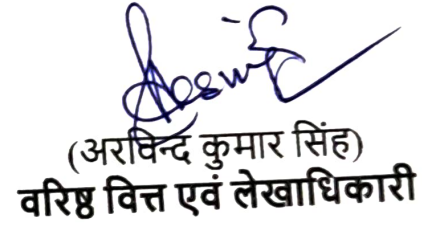 (अरविन्द कुमार सिंह)
वरिष्ठ वित्त एवं लेखाधिकारी